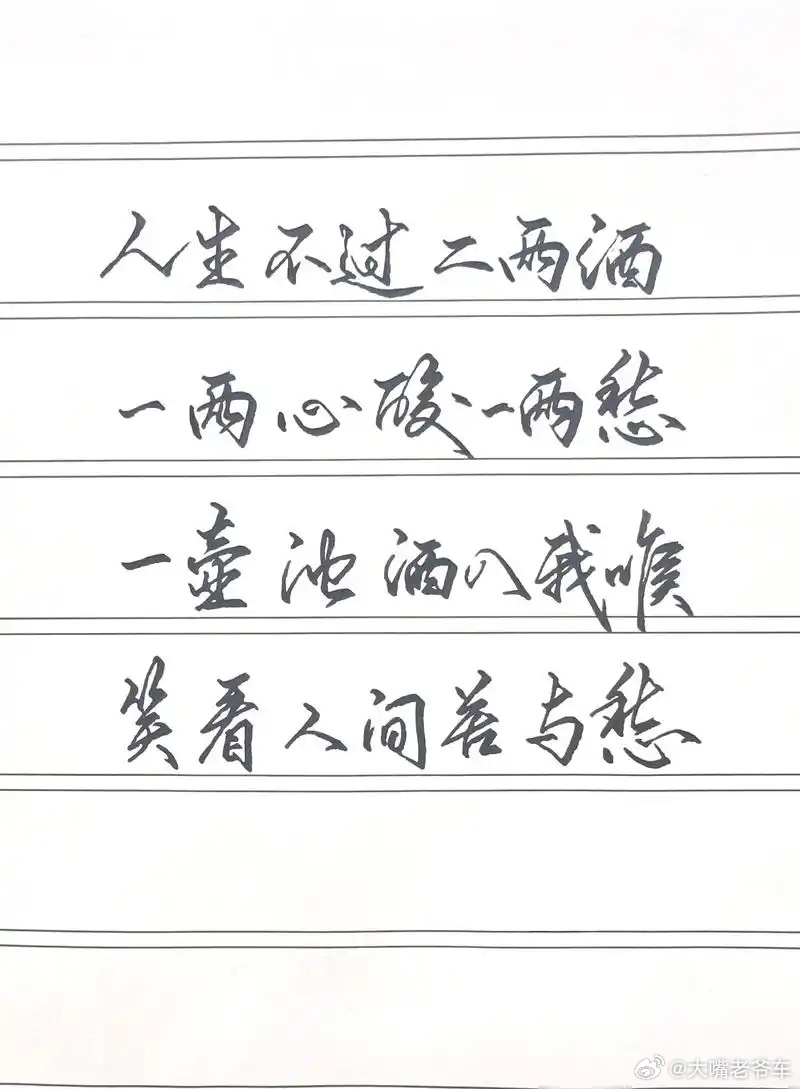 人生不过二两酒
一两心酸一两愁
一壶浊酒入我喉
笑看人间苦与愁
@大嘴老爷车